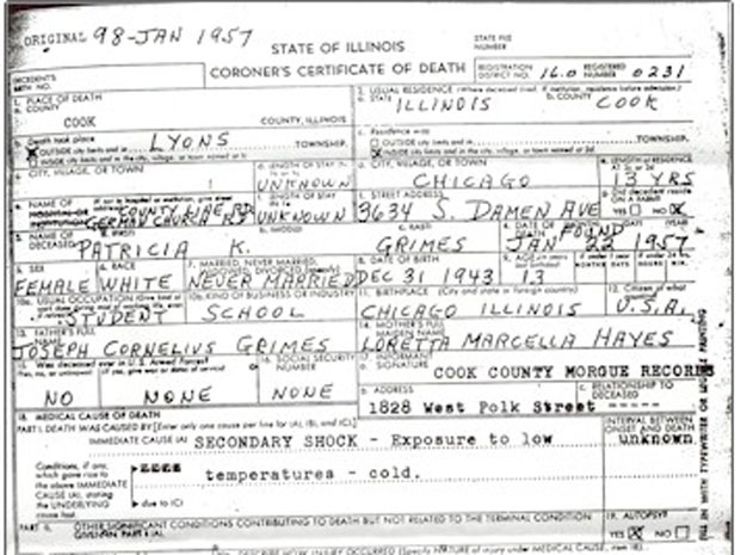 ORIGINAL 98-JAN 1957
STATE OF ILLINOIS
STATE FILE
NUMBER
CORONER'S CERTIFICATE OF DEATH
REGISTRATION
DISTRICT NO. 16.0 REGISTERED
NUMBER 0231
DECEDENTS
BIRTH NO.
1. PLACE OF DEATH
a. COUNTY
COOK COUNTY, ILLINOIS
2. USUAL RESIDENCE (Where deceased lived. If institution, residence before admission.)
a. STATE ILLINOIS b. COUNTY COOK
b. Death took place
OUTSIDE city limits and in LYONS TOWNSHIP.
INSIDE city limits and in the city, village, or town named at
c. Residence was
OUTSIDE city limits and in TOWNSHIP.
INSIDE city limits and in the city, village, or town named at 2d.
c. CITY, VILLAGE, OR TOWN
d. LENGTH OF STAY
UNKNOWN
d. CITY, VILLAGE, OR TOWN
CHICAGO
e. LENGTH OF RESIDENCE
13 YRS
e. NAME OF
HOSPITAL OR
INSTITUTION
(If not in hospital or institution, give street address)
COUNTY LINE RD
GERMAN CHURCH RD
LENGTH OF STAY
UNKNOWN
f. STREET ADDRESS
3634 S. DAMEN AVE
g. Did decedent reside
ON A FARM?
YES NO
3. NAME OF
DECEASED
a. (FIRST) b. (MIDDLE) c. (LAST)
PATRICIA K. GRIMES
4. DATE OF
DEATH FOUND (DAY) (YEAR)
JAN 22 1957
5. SEX
FEMALE
6. RACE
WHITE
7. MARRIED, NEVER MARRIED,
WIDOWED, DIVORCED (specify)
NEVER MARRIED
8. DATE OF BIRTH
DEC 31 1943
9. AGE (in years
13
If under 1 year
MONTHS DAYS
If under 24 hrs.
HOURS MIN.
10a. USUAL OCCUPATION (Give kind of
STUDENT
10b. KIND OF BUSINESS OR INDUSTRY
SCHOOL
11. BIRTHPLACE (City and state or foreign country)
CHICAGO ILLINOIS
12. Citizen of what
U.S.A.
13. FATHER'S FULL
NAME
JOSEPH CORNELIUS GRIMES
14. MOTHER'S FULL
MAIDEN NAME
LORETTA MARCELLA HAYES
15. Was deceased ever in U.S. Armed Forces?
(Yes, no, or unknown) (If yes, give war or dates of service)
NO NONE
16. SOCIAL SECURITY
NUMBER
NONE
17. INFORMANT
a. SIGNATURE COOK COUNTY MORGUE RECORDS
b. ADDRESS
1828 West Polk Street
c. RELATIONSHIP TO
DECEASED -----
18. MEDICAL CAUSE OF DEATH
PART I. DEATH WAS CAUSED BY: [Enter only one cause per line for (A), (B), and (C).]
INTERVAL BETWEEN
ONSET AND DEATH
IMMEDIATE CAUSE (A) SECONDARY SHOCK - Exposure to low
unknown
Conditions, if any,
which gave rise to
the above IMMEDIATE
CAUSE (A), stating
the UNDERLYING
cause last.
temperatures - cold.
due to (C)
PART II. OTHER SIGNIFICANT CONDITIONS CONTRIBUTING TO DEATH BUT NOT RELATED TO THE TERMINAL CONDITION
GIVEN IN PART I (A).
19. AUTOPSY?
YES NO
DESCRIBE HOW INJURY OCCURRED (Specify NATURE of injury under MEDICAL CAUSE, item 18).
FILL IN WITH TYPEWRITER OR LEGIBLE PRINTING